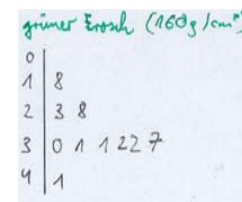 grüner Erosch (160g/cm²)
0
1 | 8
2 | 3 8
3 | 0 1 1 2 2 7
4 | 1